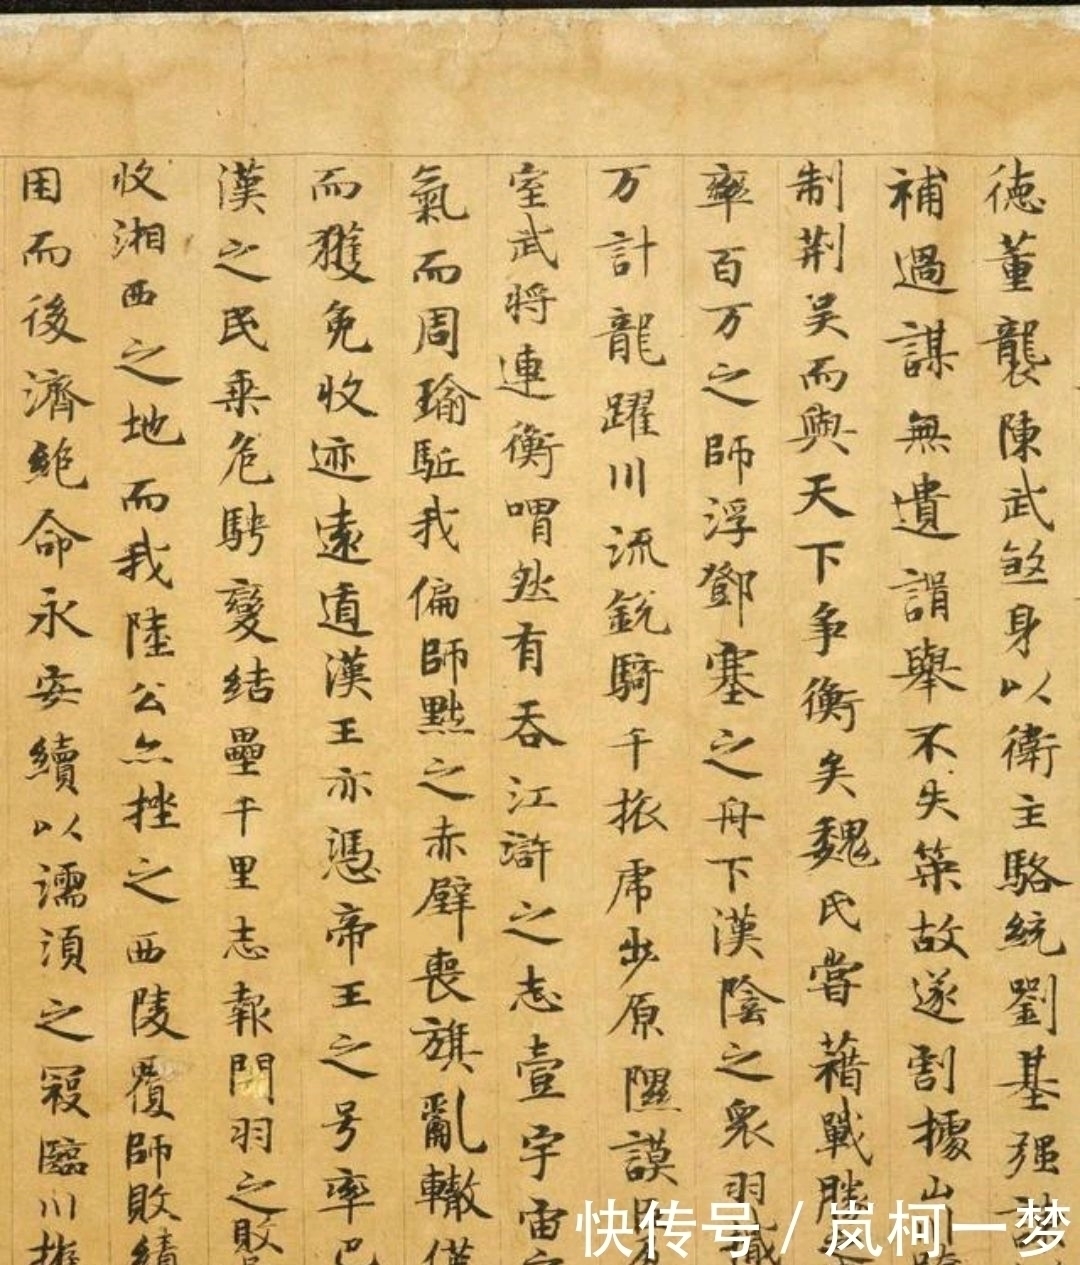 德董襲陳武煞身以衛主駱統劉基强諫
補過謀無遺諝舉不失策故遂割據山川跨
制荆吴而與天下争衡矣魏氏嘗藉戰勝之
率百万之師浮鄧塞之舟下漢陰之衆羽檝
万計龍躍川流銳騎千旅虎步原隰謨臣
室武將連衡喟然有吞江滸之志壹宇宙之
氣而周瑜駈我偏師黜之赤壁喪旗亂轍僅
而獲免收迹遠遁漢王亦憑帝王之号率巴
漢之民乗危騁變結壘千里志報関羽之敗
收湘西之地而我陸公亦挫之西陵覆師敗績
困而後濟絶命永安續以濡湏之寇臨川摧
快传号 / 岚柯一梦